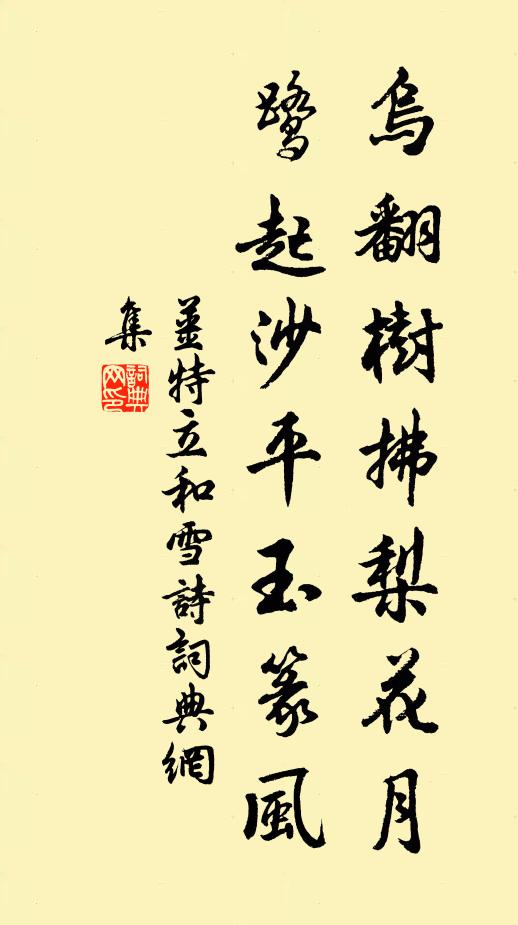 烏翻樹拂梨花月
鷺起沙平玉篆風
薑特立和雪詩詞典網
集
詞典网印